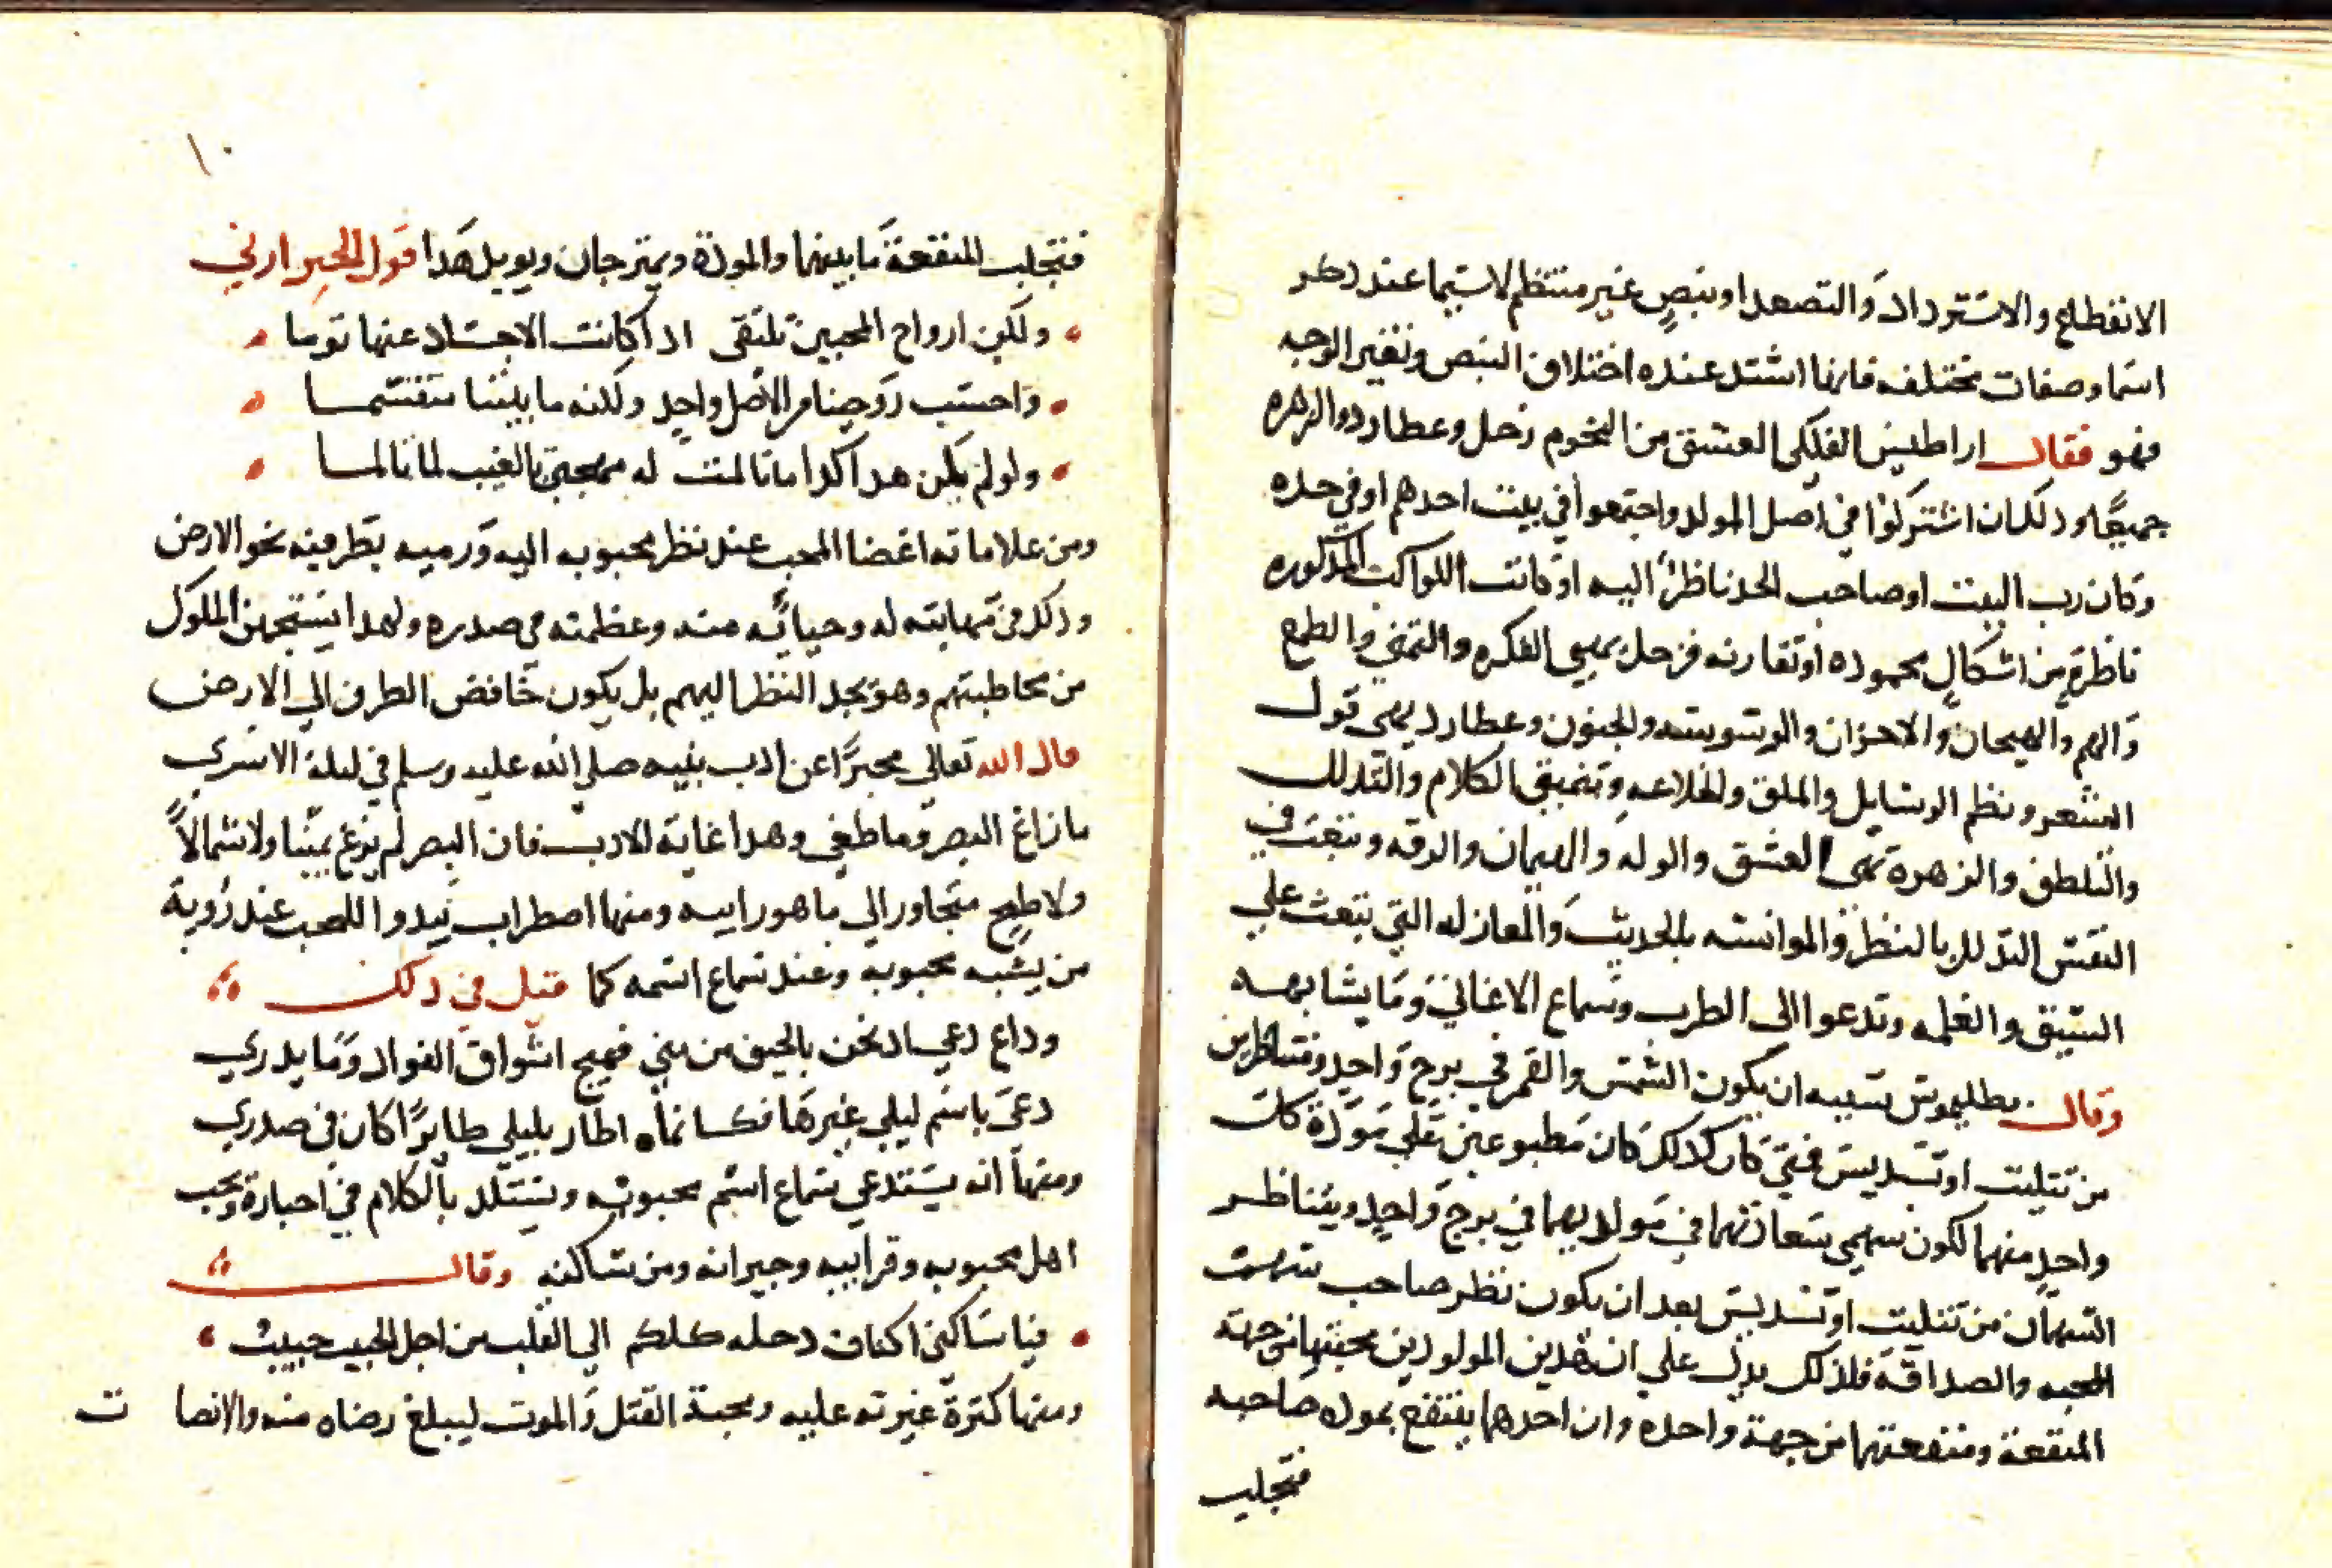 الانقطاع والاسترداد والتصعد او نبص غير منتظم لاسيما عند ذكر
اسما وصفات مختلفه فايها اشتد عنده اختلاف النبص وتغير الوجه
فهو فقال اراطيس الفلكي العشق من النجوم زحل وعطارد والزهره
جميعًا وذلك ان اشتركوا في اصل المولد واجتمعوا في بيت احدهم او في حده
وكان رب البيت او صاحب الحد ناظرًا اليه او كانت الكواكب المذكوره
ناظرة من اشكال محموده او تقارنه فزحل يهيي الفكره والتمني والطمع
والهم والهيجان والاحزان والوسوسه والجنون وعطارد يهيي قول
الشعر ونظم الرسايل والملق والخلاعه وتنميق الكلام والتذلل
والتلطف والزهرة تهيي العشق والوله والهيمان والرقه وتبعث في
النفس التدلل بالنظر والموانسه بالحديث والمعازله التي تبعث علي
الشبق والغلمه وتدعوا الى الطرب وسماع الاغاني وما يشابهه
وقال بطليموس سببه ان يكون الشمس والقمر في برج واحد ومتناظرين
من تثليت او تسديس فمتي كان كدلك كان مطبوعين علي مودة كل
واحد منهما لكون سهمي سعادتهما في مولديهما في برج واحد ويتناظر
السهمان من تثليت او تسديس بعد ان يكون نظر صاحب سهم
المحبه والصداقة فلذلك يدل علي ان هدين المولودين محبتهما من جهة
المنفعة ومنفعتهما من جهة واحده وان احدهما ينتفع بمودة صاحبه
فتجلب
١٠
فتجلب المنفعة ما بينهما والمودة ويمتزجان ويويد هدا قول الخبرارزي
ولكن ارواح المحبين تلتقى ادا كانت الاجساد عنها نوما
واحسب روحينا من الاصل واحد ولكنه ما بيننا متقسما
ولو لم يكن هدا كدا ما تالمت له مهجتي بالغيب لما تالما
ومن علاماته اغضا المحب عند نظر محبوبه اليه ورميه بطرفه نحو الارض
وذلك من مهابته له وحيائه منه وعظمته في صدره ولهدا يستهجن الملوك
من يخاطبهم وهو يحد النظر اليهم بل يكون خافض الطرف الي الارض
قال الله تعالي مخبرًا عن ادب نبيه صلي الله عليه وسلم في ليلة الاسري
ما زاغ البصر وما طغي وهدا غاية الادب فان البصر لم يزغ يمينا ولا شمالاً
ولا طمح متجاوزا الي ما هو راييه ومنها اصطراب يبدوا للمحب عند روية
من يشبه محبوبه وعند سماع اسمه كما قيل في دلك
وداع دعي اد نحن بالخيف من مني فهيج اشواق الفواد وما يدري
دعي باسم ليلي غيرها فكانما اطار بليلي طايرًا كان في صدري
ومنها انه يستدعي سماع اسم محبوبه ويستلد بالكلام في اخباره ويحب
اهل محبوبه وقرابيه وجيرانه ومن ساكنه وقال
فيا ساكني اكناف دجله كلكم الي القلب من اجل الحبيب حبيب
ومنها كثرة غيرته عليه ومحبة القتل والموت ليبلغ رضاه منه والانصا ت